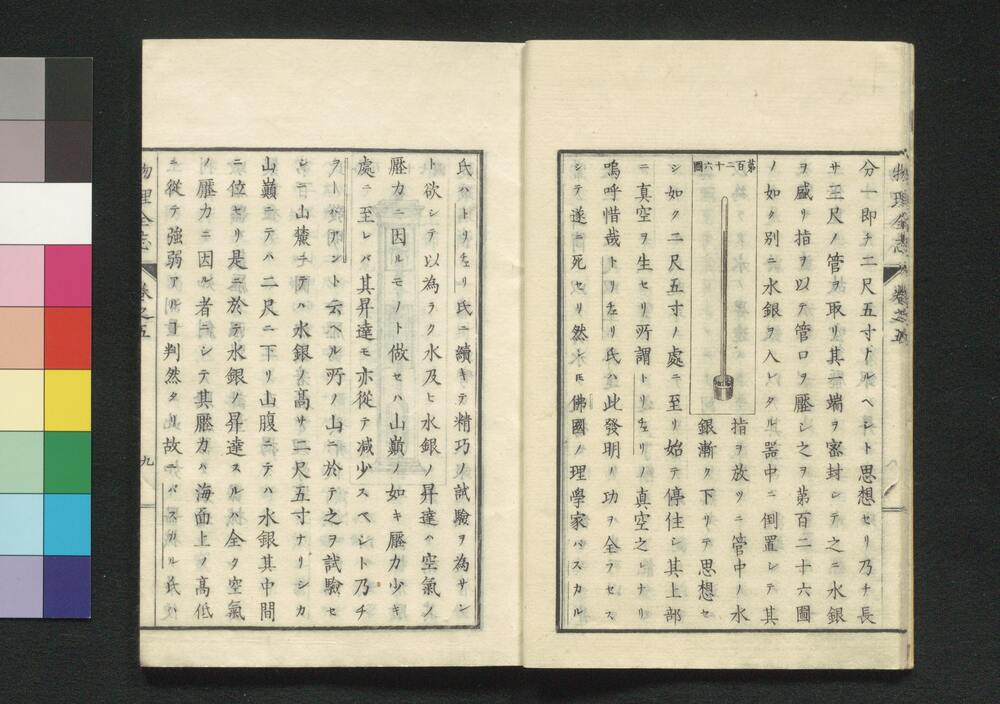 物理全志 卷之五
分一即チ二尺五寸トルヘシト思想セリ乃チ長
サ三尺ノ管ヲ取リ其一端ヲ密封シテ之ニ水銀
ヲ盛リ指ヲ以テ管口ヲ壓シ之ヲ第百二十六圖
ノ如ク別ニ水銀ヲ入レタル器中ニ倒置シテ其
第百二十六圖
指ヲ放ツニ管中ノ水
銀漸ク下リテ思想セ
シ如ク二尺五寸ノ處ニ至リ始テ停住シ其上部
ニ真空ヲ生セリ所謂トリチェリノ真空之レナリ
嗚呼惜哉トリチェリ氏ハ此發明ノ功ヲ全フセズ
シテ遂ニ死セリ然レ𪜈佛國ノ理學家パスカル
氏ハトリチェリ氏ニ續キテ精巧ノ試驗ヲ為サン
ト欲シテ以為ラク水及ヒ水銀ノ昇達ハ空氣ノ
壓力ニ因ルモノト做セハ山巓ノ如キ壓力少キ
處ニ至レバ其昇達モ亦從テ減少スベシト乃チ
ヲトハアント云ヘル所ノ山ニ於テ之ヲ試驗セ
シニ山麓ニテハ水銀ノ高サ二尺五寸ナリシカ
山巓ニテハ二尺ニ下リ山腹ニテハ水銀其中間
ニ位セリ是ニ於テ水銀ノ昇達スルハ全ク空氣
ノ壓力ニ因ル者ニシテ其壓力ハ海面上ノ高低
ニ從テ強弱アルヿ判然タリ故ニパスカル氏ハ
物理全志 卷之五 九